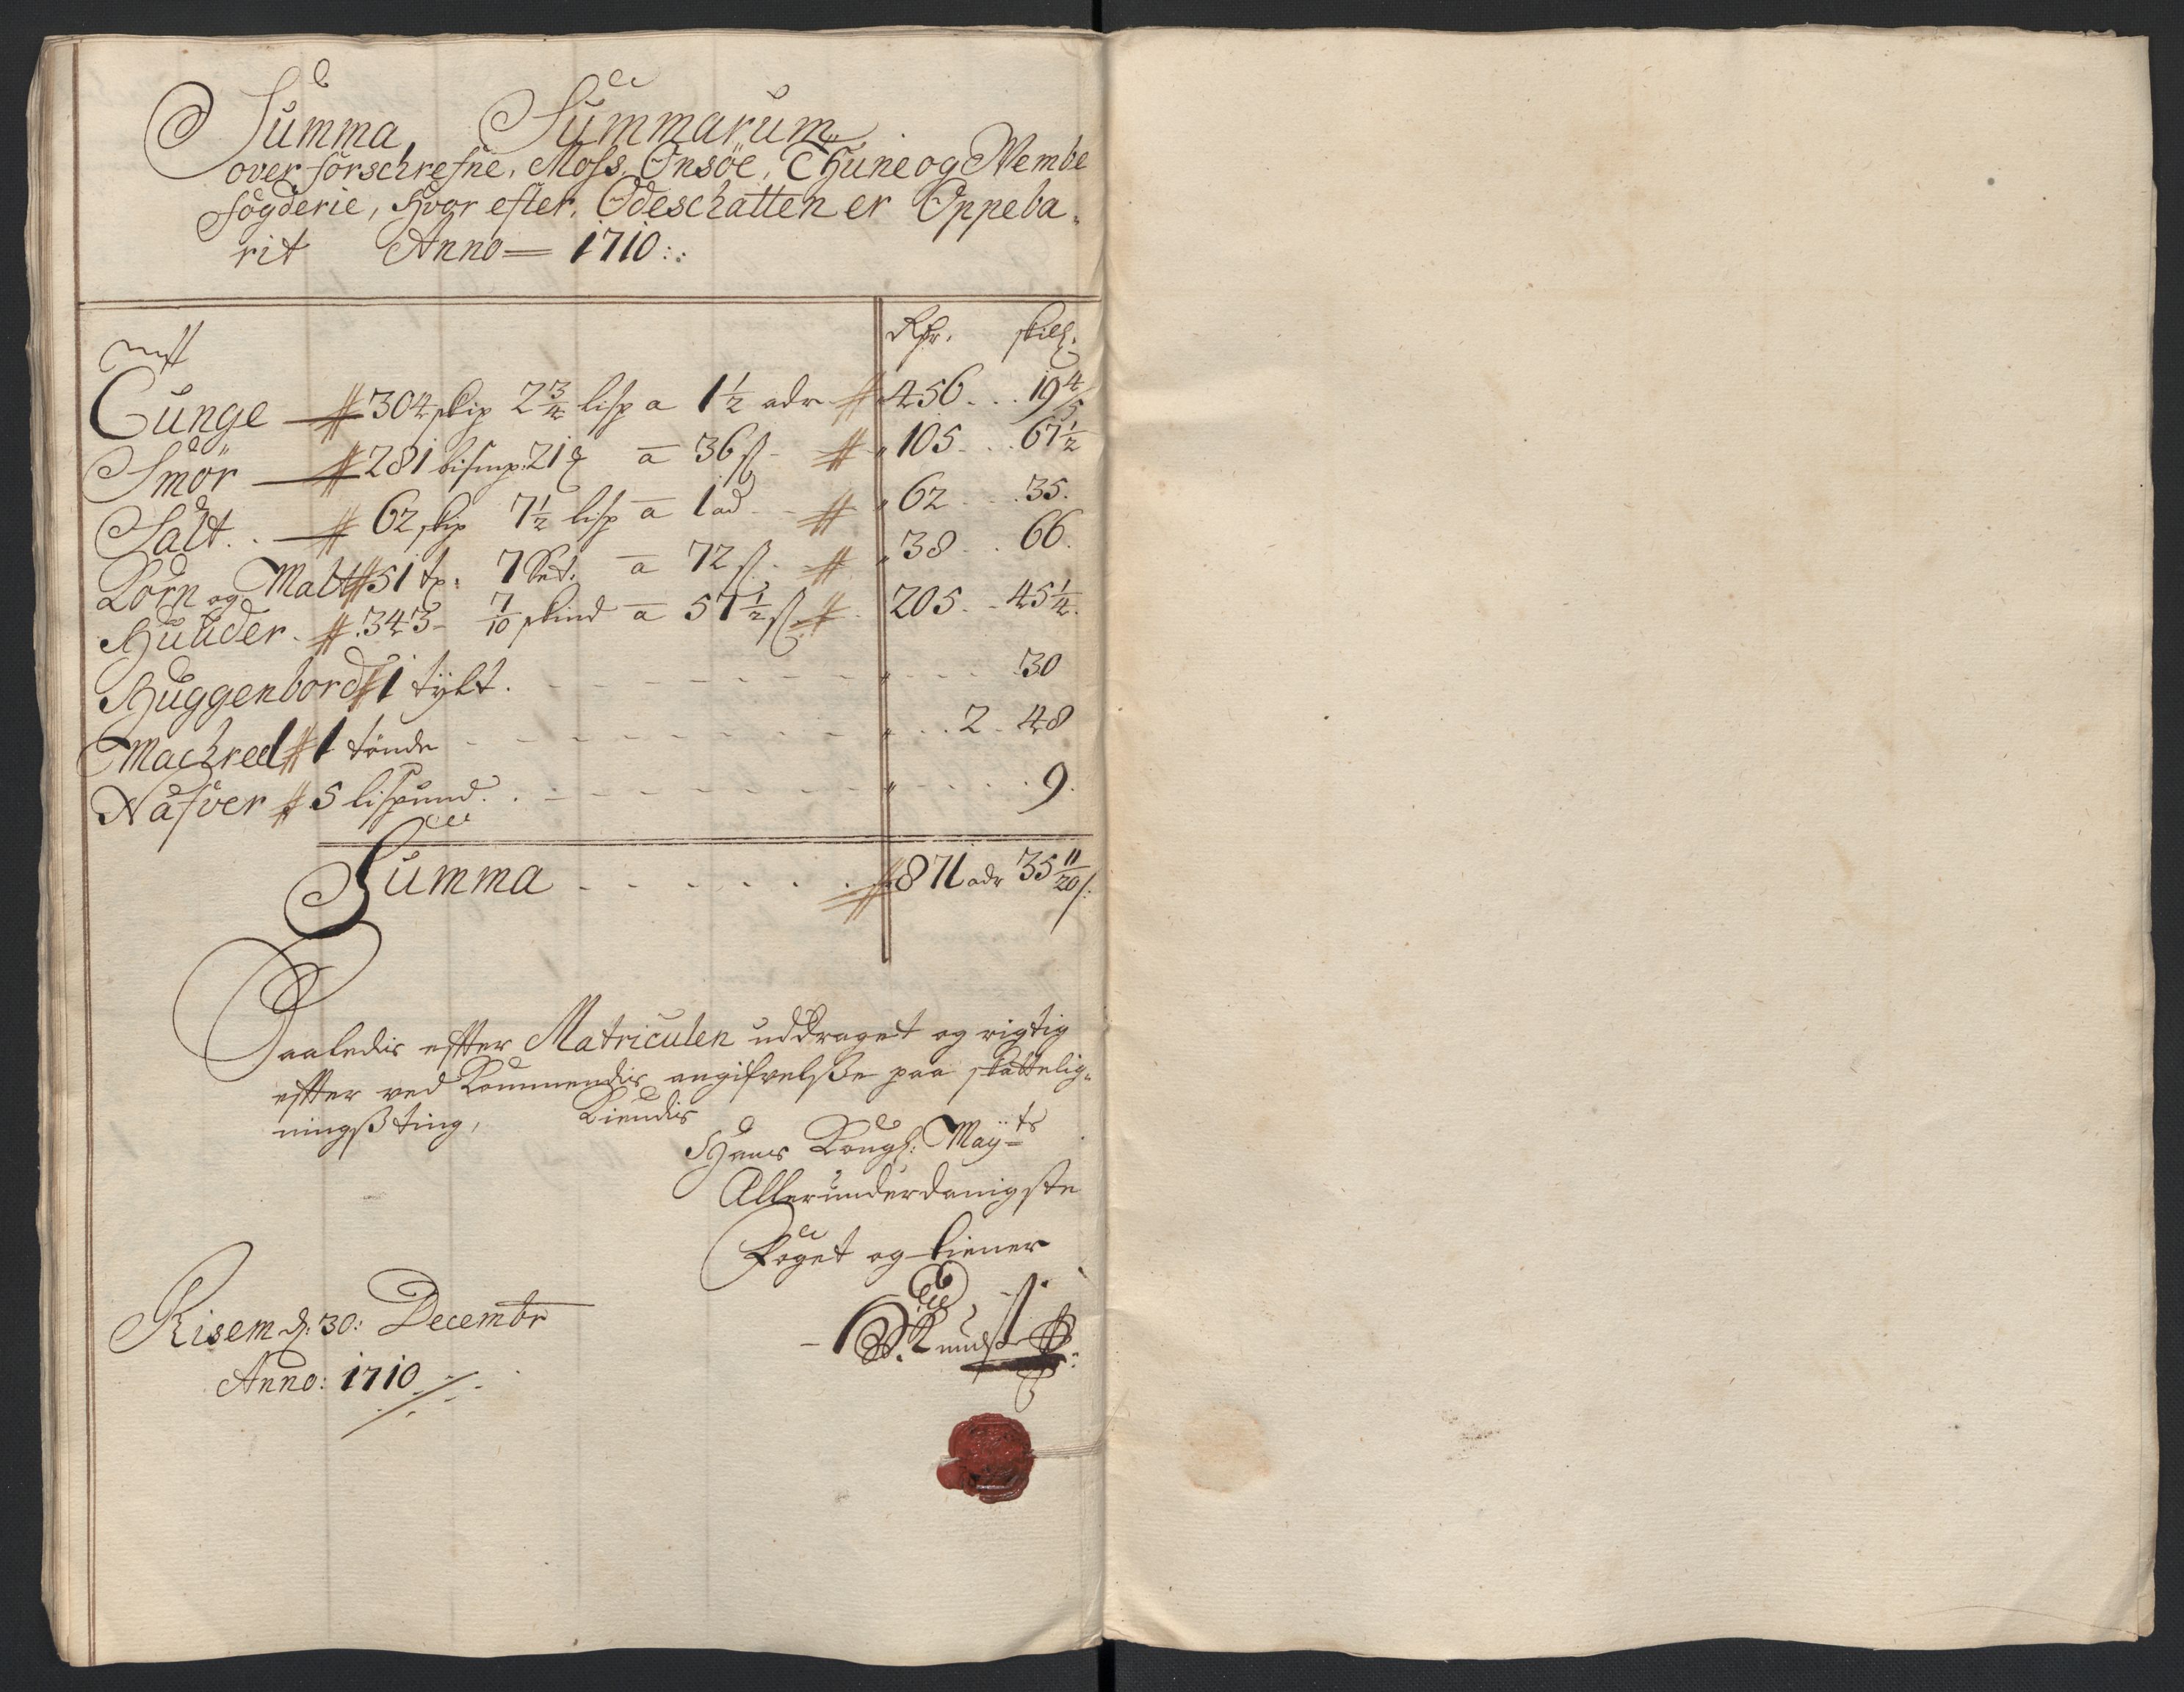 Summa, Summarum,
over forschrefne, Moss, Onsöe, Thune og Wembe
fögderie, Hvor efter, Odeschatten er Oppeba-
rit Anno = 1710:.
Rdr. skill.
Tunge 304 skip 2 3/4 lisp a 1 1/2 rdr 456 . . 19 4/5
Smör 281 bismp: 21 a 36 s 105 . . 67 1/2
Salt . . 62 skp 7 1/2 lisp a 1 rd 62 . . 35.
Korn og Malt 51 tr: 7 Set: a 72 s 38 . . 66.
Huuder . 343 7/10 skind a 57 1/2 s 205 . . 45 1/4.
Huggenbord 1 tÿlt . 30
Machreel 1 tönde 2 . 48
Näfver 5 lispund . . 9.
Summa 871 rdr 35 11/20 s:
Saaledis effter Matriculen uddraget og rigtig
effter ved Kommendis angifvelsse paa skattelig-
ningsting, Kiendis
Hans Kongl: Mayts
Allerunderdanigste
Foget og tiener
Knudss
Risem d: 30: Decembr
Anno: 1710